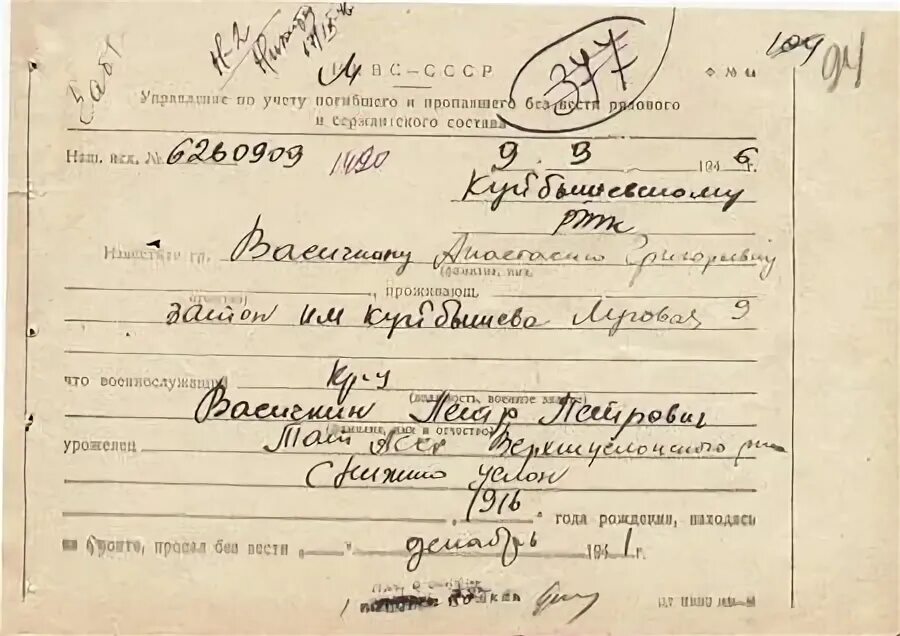 Н-2
377
109 94
МВС-СССР
Ф №
Управление по учету погибшего и пропавшего без вести рядового
и сержантского состава
Наш. исх. № 6260909 1490 9. 9 1946 г.
Куйбышевскому
РВК
Известите гр. Васичкину Анастасию Григорьевну
(фамилия, имя,
, проживающ
затон им Куйбышева Луговая 9
что военнослужащий кр-ц
Васичкин Петр Петрович
(фамилия, имя и отчество)
уроженец Тат АССР Верхнеуслонского р-на
с Нижно Услон
1916 года рождения, находясь
на фронте, пропал без вести „ " декабрь 1941 г.